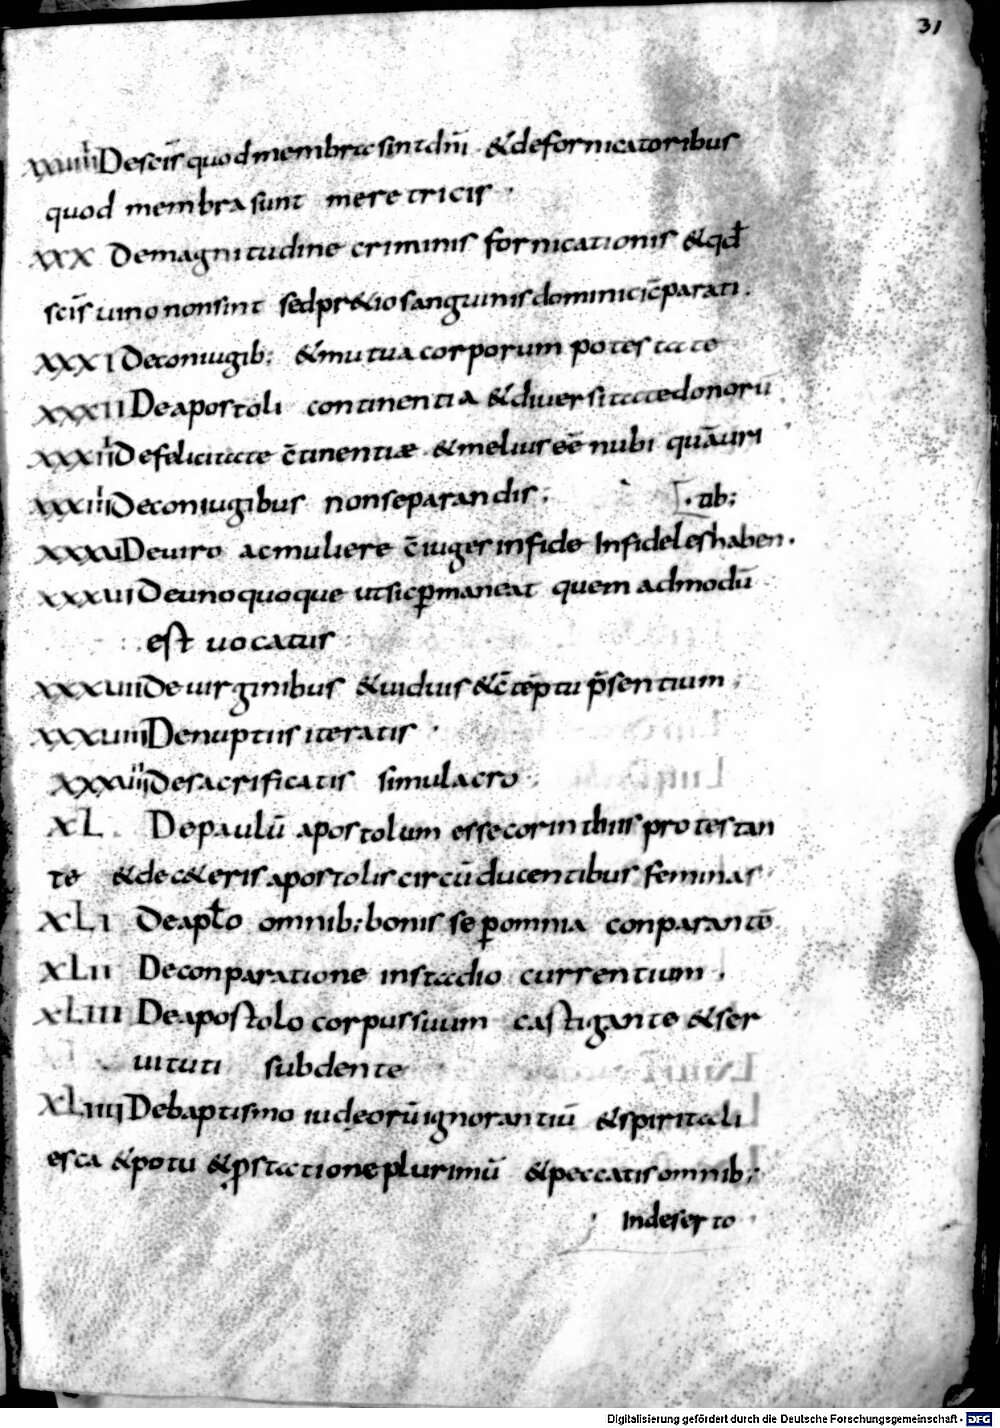 31
xxuiiii De sc̄is quod membra sint dn̄i & de fornicatoribus
quod membra sunt meretricis ·
xxx De magnitudine criminis fornicationis & qđ
sc̄is uino non sint sed pr&io sanguinis dominici c̄parati .
xxxI De coniugib; & mutua corporum potestate
xxxII De apostoli continentia & diuersitate donorū
xxxIII De felicitate c̄tinentiæ & melius eē nubi quā uri
xxxIIII De coniugibus non separandis ; tib;
xxxu De uiro ac muliere c̄iuger infide Infideles haben .
xxxuI De unoquoque ut sic p̄maneat quem admodū
est uocatus
xxxuII De uirginibus & uiduis & c̄teptu p̄sentium ;
xxxuIII De nuptiis iteratis ·
xxxuIIII De sacrificatis simulacro
xL . De paulū apostolum esse corinthiis protestan
te & de c&eris apostolis circūducentibus feminas
xLI De apl̄o omnib; bonis se p̄ omnia conparantē
xLII De conparatione in stadio currentium .
xLIII De apostolo corpus suum castigante & ser
uituti subdente
xLIIII De baptismo iudeorū ignorantiū & spiritali
esca & potu & p̄statione plurimū & peccatis omnib;
In deserto
Digitalisierung gefördert durch die Deutsche Forschungsgemeinschaft - DFG